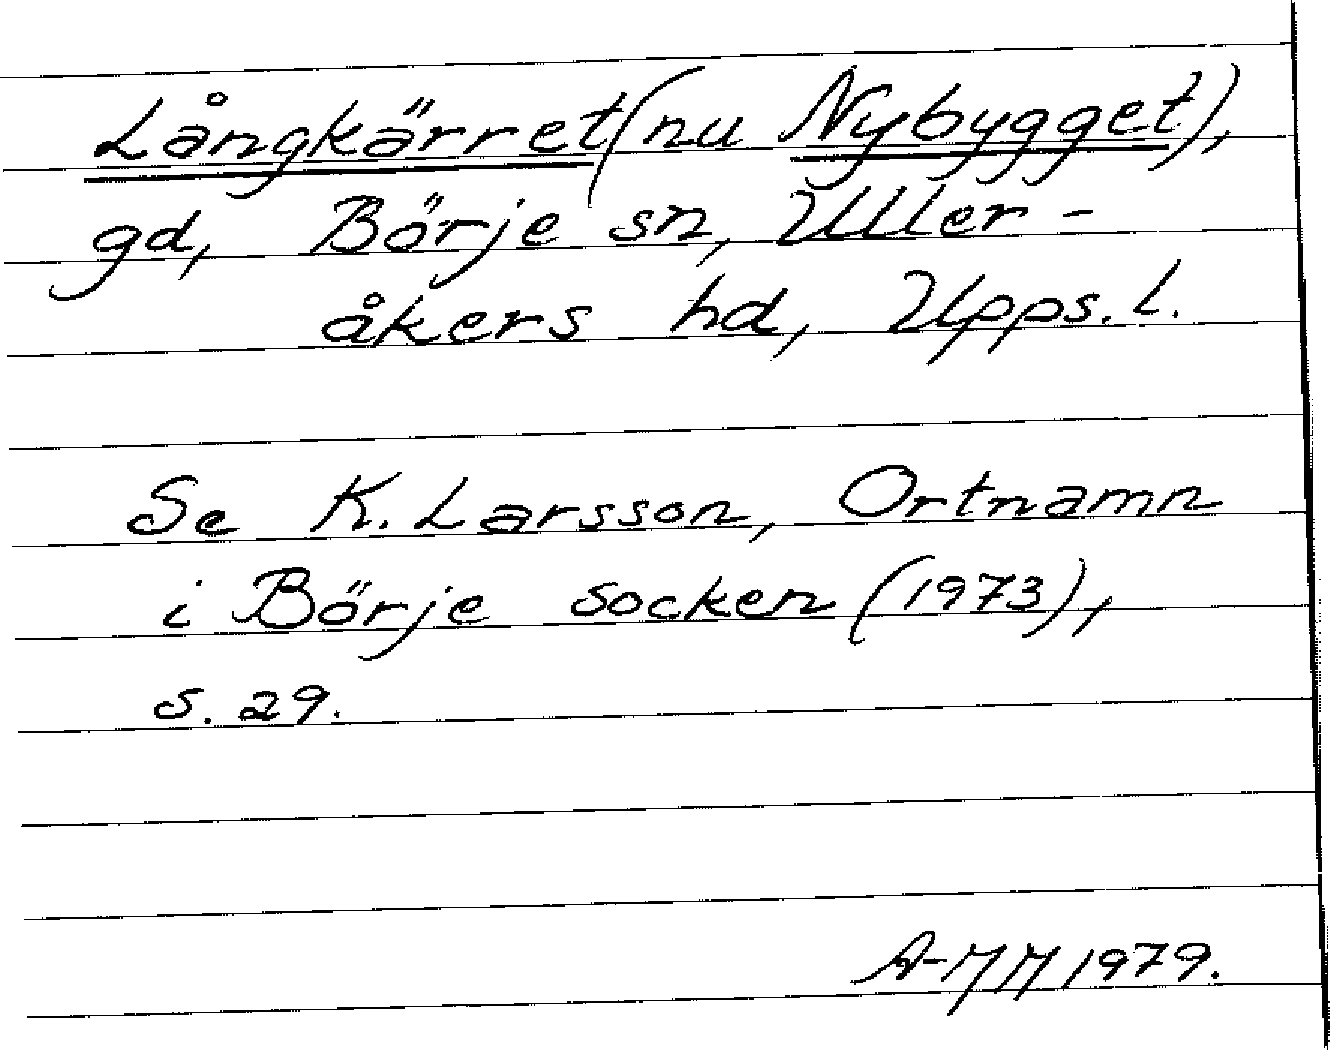 Långkärret (nu Nybygget),
gd, Börje sn, Uller-
åkers hd, Upps. l.
Se K. Larsson, Ortnamn
i Börje socken (1973),
s. 29.
A-MM 1979.